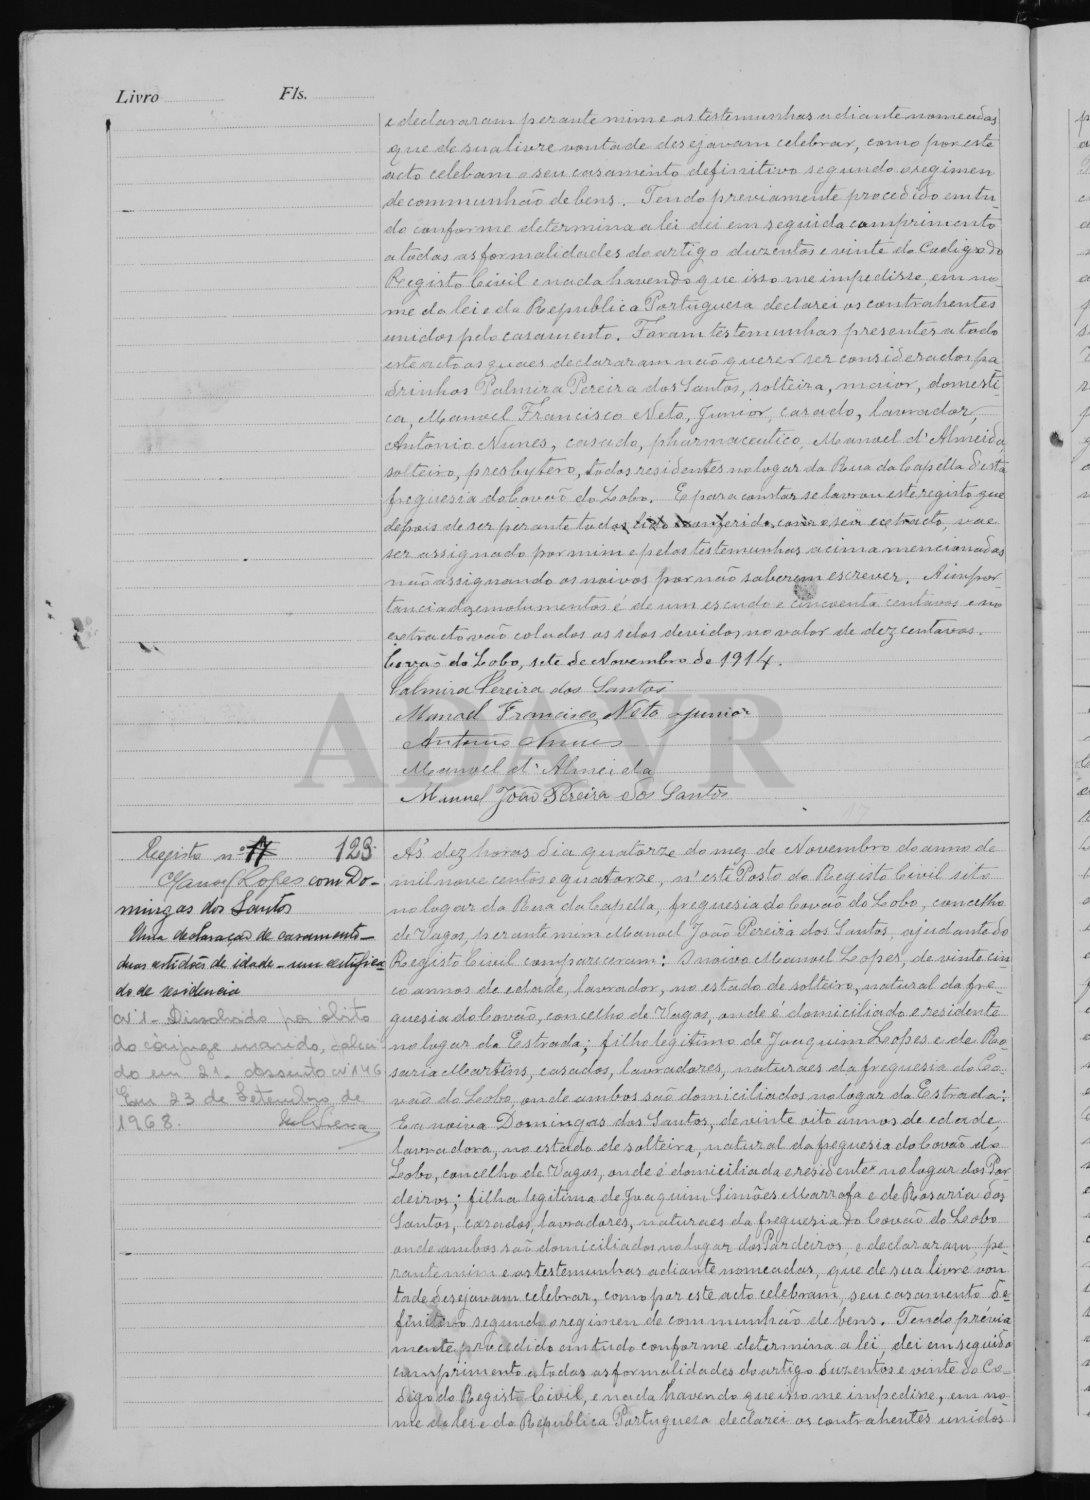 Livro Fls.
e declararam perante mim e as testemunhas adiante nomeadas
que de sua livre vontade desejavam celebrar, como por este
acto celebam o seu casamento definitivo segundo o regimen
de communhão de bens. Tendo previamente procedido em tu-
do conforme determina a lei dei em seguida comprimento
a todas as formalidades do artigo duzentos e vinte do Codigo do
Registo Civil e nada havendo que isso me impedisse, em no-
me da lei e da Republica Portuguesa declarei os contrahentes
unidos pelo casamento. Foram testemunhas presentes a todo
este acto as quaes declararam não querer ser considerados pa
drinhos Palmira Pereira dos Santos, solteira, maior, domesti-
ca, Manoel Francisco Neto, Junior, casado, lavrador,
Antonio Nunes, casado, pharmaceutico, Manoel d'Almeida,
solteiro, presbytero, todos residentes no logar da Rua da Capella d'esta
freguesia do Covão do Lobo. E para constar se lavrou este registo que
depois de ser perante todos lido conferido com o seu extracto, vae
ser assignado por mim e pelas testemunhas acima mencionadas
não assignando os noivos por não saberem escrever. A impor-
tancia d'emolumentos é de um escudo e cincoenta centavos e no
extracto vão colados os selos devidos no valor de dez centavos.
Covão do Lobo, sete de Novembro de 1914.
Palmira Pereira dos Santos
Manoel Francisco Neto Junior
Antonio Nunes
Manoel d'Almeida
Manuel João Pereira dos Santos
ADAVR
Registo nº 17 123
Manoel Lopes com Do-
mingas dos Santos
Uma declaração de casamento
duas certidões de idade - um certifica-
do de residencia
Nº 1 - Dissolvido por óbito
do cônjuge marido, faleci-
do em 21. Assento nº 146
Em 23 de Setembro de
1968.
As dez horas dia quatorze do mez de Novembro do anno de
mil nove centos e quatorze, n'este Posto do Registo Civil sito
no logar da Rua da Capella, freguesia do Covão do Lobo, concelho
de Vagos, perante mim Manoel João Pereira dos Santos, ajudante do
Registo Civil compareceram: O noivo Manoel Lopes, de vinte cin-
co annos de edade, lavrador, no estado de solteiro, natural da fre-
guesia do Covão, concelho de Vagos, onde é domiciliado e residente
no logar da Estrada; filho legitimo de Joaquim Lopes e de Ro-
saria Martins, casados, lavradores, naturaes da freguesia do Co-
vão do Lobo, onde ambos são domiciliados no logar da Estrada:
E a noiva Domingas dos Santos, de vinte oito annos de edade,
lavradora, no estado de solteira, natural da freguesia do Covão do
Lobo, concelho de Vagos, onde é domiciliada e residente no logar dos Par
deiros; filha legitima de Joaquim Simões Marrafa e de Rosaria dos
Santos, casados, lavradores, naturaes da freguesia do Covão do Lobo
onde ambos são domiciliados no logar dos Pardeiros, e declararam, pe-
rante mim e as testemunhas adiante nomeadas, que de sua livre von
tade desejavam celebrar, como por este acto celebram, seu casamento de-
finitivo segundo o regimen de communhão de bens. Tendo prévia
mente procedido em tudo conforme determina a lei, dei em seguida
comprimento a todas as formalidades do artigo duzentos e vinte do Co-
digo do Registo Civil, e nada havendo que isso me impedisse, em no-
me da lei e da Republica Portuguesa declarei os contrahentes unidos